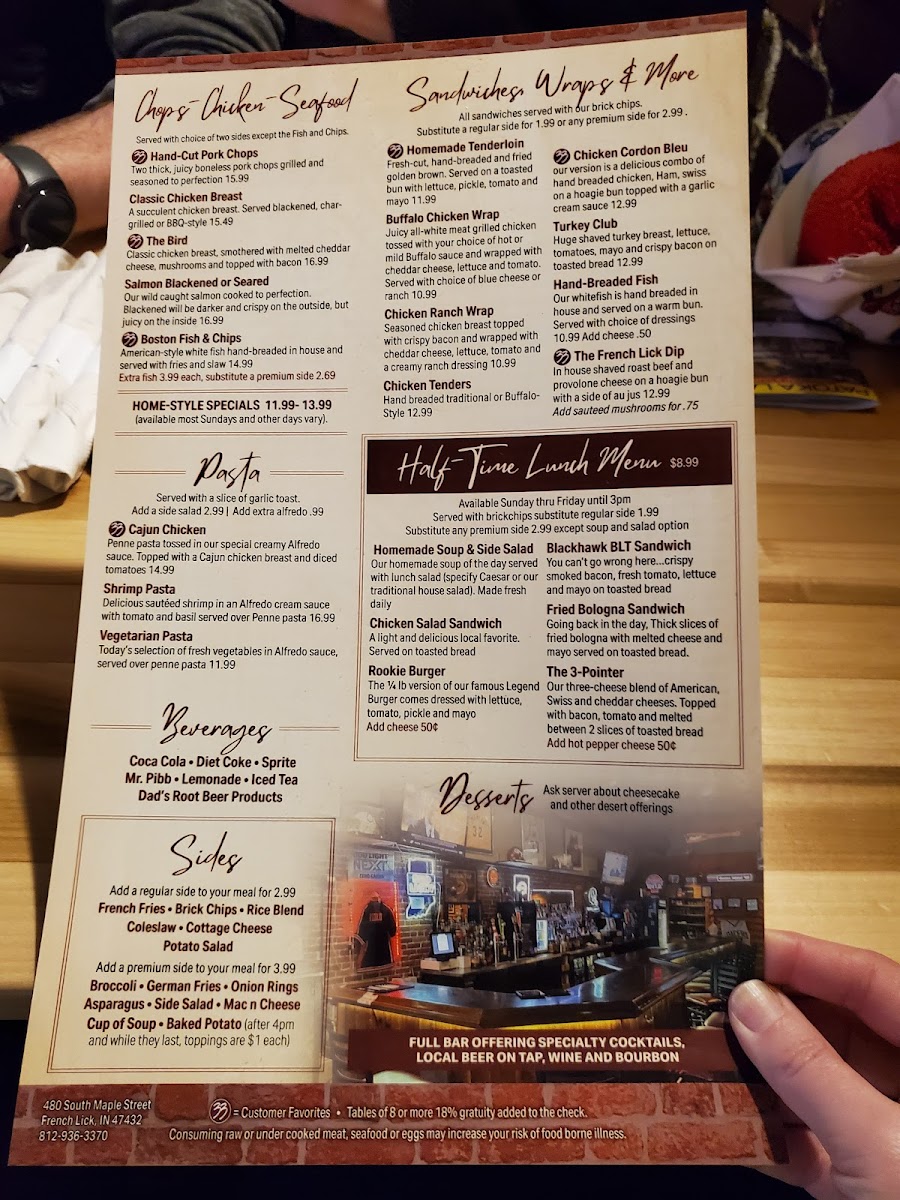 Chops-Chicken-Seafood
Served with choice of two sides except the Fish and Chips.
33 Hand-Cut Pork Chops
Two thick, juicy boneless pork chops grilled and
seasoned to perfection 15.99
Classic Chicken Breast
A succulent chicken breast. Served blackened, char-
grilled or BBQ-style 15.49
33 The Bird
Classic chicken breast, smothered with melted cheddar
cheese, mushrooms and topped with bacon 16.99
Salmon Blackened or Seared
Our wild caught salmon cooked to perfection.
Blackened will be darker and crispy on the outside, but
juicy on the inside 16.99
33 Boston Fish & Chips
American-style white fish hand-breaded in house and
served with fries and slaw 14.99
Extra fish 3.99 each, substitute a premium side 2.69
HOME-STYLE SPECIALS 11.99- 13.99
(available most Sundays and other days vary).
Pasta
Served with a slice of garlic toast.
Add a side salad 2.99 | Add extra alfredo .99
33 Cajun Chicken
Penne pasta tossed in our special creamy Alfredo
sauce. Topped with a Cajun chicken breast and diced
tomatoes 14.99
Shrimp Pasta
Delicious sautéed shrimp in an Alfredo cream sauce
with tomato and basil served over Penne pasta 16.99
Vegetarian Pasta
Today's selection of fresh vegetables in Alfredo sauce,
served over penne pasta 11.99
Beverages
Coca Cola • Diet Coke • Sprite
Mr. Pibb • Lemonade • Iced Tea
Dad's Root Beer Products
Sides
Add a regular side to your meal for 2.99
French Fries • Brick Chips • Rice Blend
Coleslaw • Cottage Cheese
Potato Salad
Add a premium side to your meal for 3.99
Broccoli • German Fries • Onion Rings
Asparagus • Side Salad • Mac n Cheese
Cup of Soup • Baked Potato (after 4pm
and while they last, toppings are $1 each)
Sandwiches, Wraps & More
All sandwiches served with our brick chips.
Substitute a regular side for 1.99 or any premium side for 2.99 .
33 Homemade Tenderloin
Fresh-cut, hand-breaded and fried
golden brown. Served on a toasted
bun with lettuce, pickle, tomato and
mayo 11.99
Buffalo Chicken Wrap
Juicy all-white meat grilled chicken
tossed with your choice of hot or
mild Buffalo sauce and wrapped with
cheddar cheese, lettuce and tomato.
Served with choice of blue cheese or
ranch 10.99
Chicken Ranch Wrap
Seasoned chicken breast topped
with crispy bacon and wrapped with
cheddar cheese, lettuce, tomato and
a creamy ranch dressing 10.99
Chicken Tenders
Hand breaded traditional or Buffalo-
Style 12.99
33 Chicken Cordon Bleu
our version is a delicious combo of
hand breaded chicken, Ham, swiss
on a hoagie bun topped with a garlic
cream sauce 12.99
Turkey Club
Huge shaved turkey breast, lettuce,
tomatoes, mayo and crispy bacon on
toasted bread 12.99
Hand-Breaded Fish
Our whitefish is hand breaded in
house and served on a warm bun.
Served with choice of dressings
10.99 Add cheese .50
33 The French Lick Dip
In house shaved roast beef and
provolone cheese on a hoagie bun
with a side of au jus 12.99
Add sauteed mushrooms for .75
Half-Time Lunch Menu $8.99
Available Sunday thru Friday until 3pm
Served with brickchips substitute regular side 1.99
Substitute any premium side 2.99 except soup and salad option
Homemade Soup & Side Salad
Our homemade soup of the day served
with lunch salad (specify Caesar or our
traditional house salad). Made fresh
daily
Chicken Salad Sandwich
A light and delicious local favorite.
Served on toasted bread
Rookie Burger
The ¼ lb version of our famous Legend
Burger comes dressed with lettuce,
tomato, pickle and mayo
Add cheese 50¢
Blackhawk BLT Sandwich
You can't go wrong here...crispy
smoked bacon, fresh tomato, lettuce
and mayo on toasted bread
Fried Bologna Sandwich
Going back in the day, Thick slices of
fried bologna with melted cheese and
mayo served on toasted bread.
The 3-Pointer
Our three-cheese blend of American,
Swiss and cheddar cheeses. Topped
with bacon, tomato and melted
between 2 slices of toasted bread
Add hot pepper cheese 50¢
Desserts
Ask server about cheesecake
and other desert offerings
FULL BAR OFFERING SPECIALTY COCKTAILS,
LOCAL BEER ON TAP, WINE AND BOURBON
480 South Maple Street
French Lick, IN 47432
812-936-3370
33 = Customer Favorites • Tables of 8 or more 18% gratuity added to the check.
Consuming raw or under cooked meat, seafood or eggs may increase your risk of food borne illness.